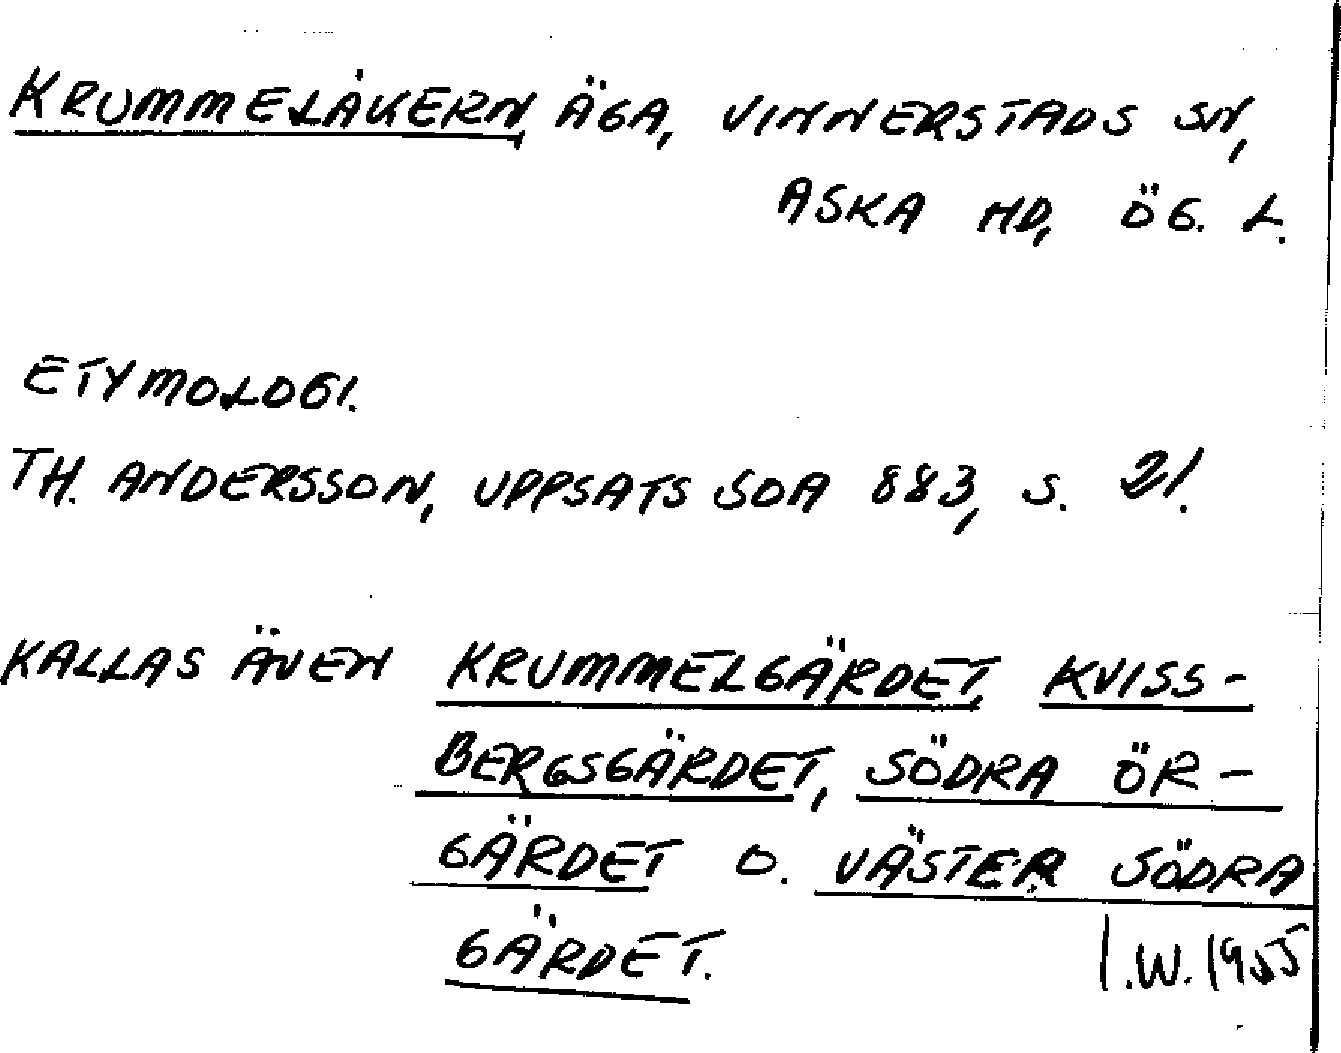 KRUMMELÅKERN, ÄGA, VINNERSTADS SN,
ASKA HD, ÖG. L.
ETYMOLOGI.
TH. ANDERSSON, UPPSATS SOA 883, S. 21.
KALLAS ÄVEN KRUMMELGÄRDET, KVISS-
BERGSGÄRDET, SÖDRA ÖR-
GÄRDET O. VÄSTER SÖDRA
GÄRDET.
I.W. 1955